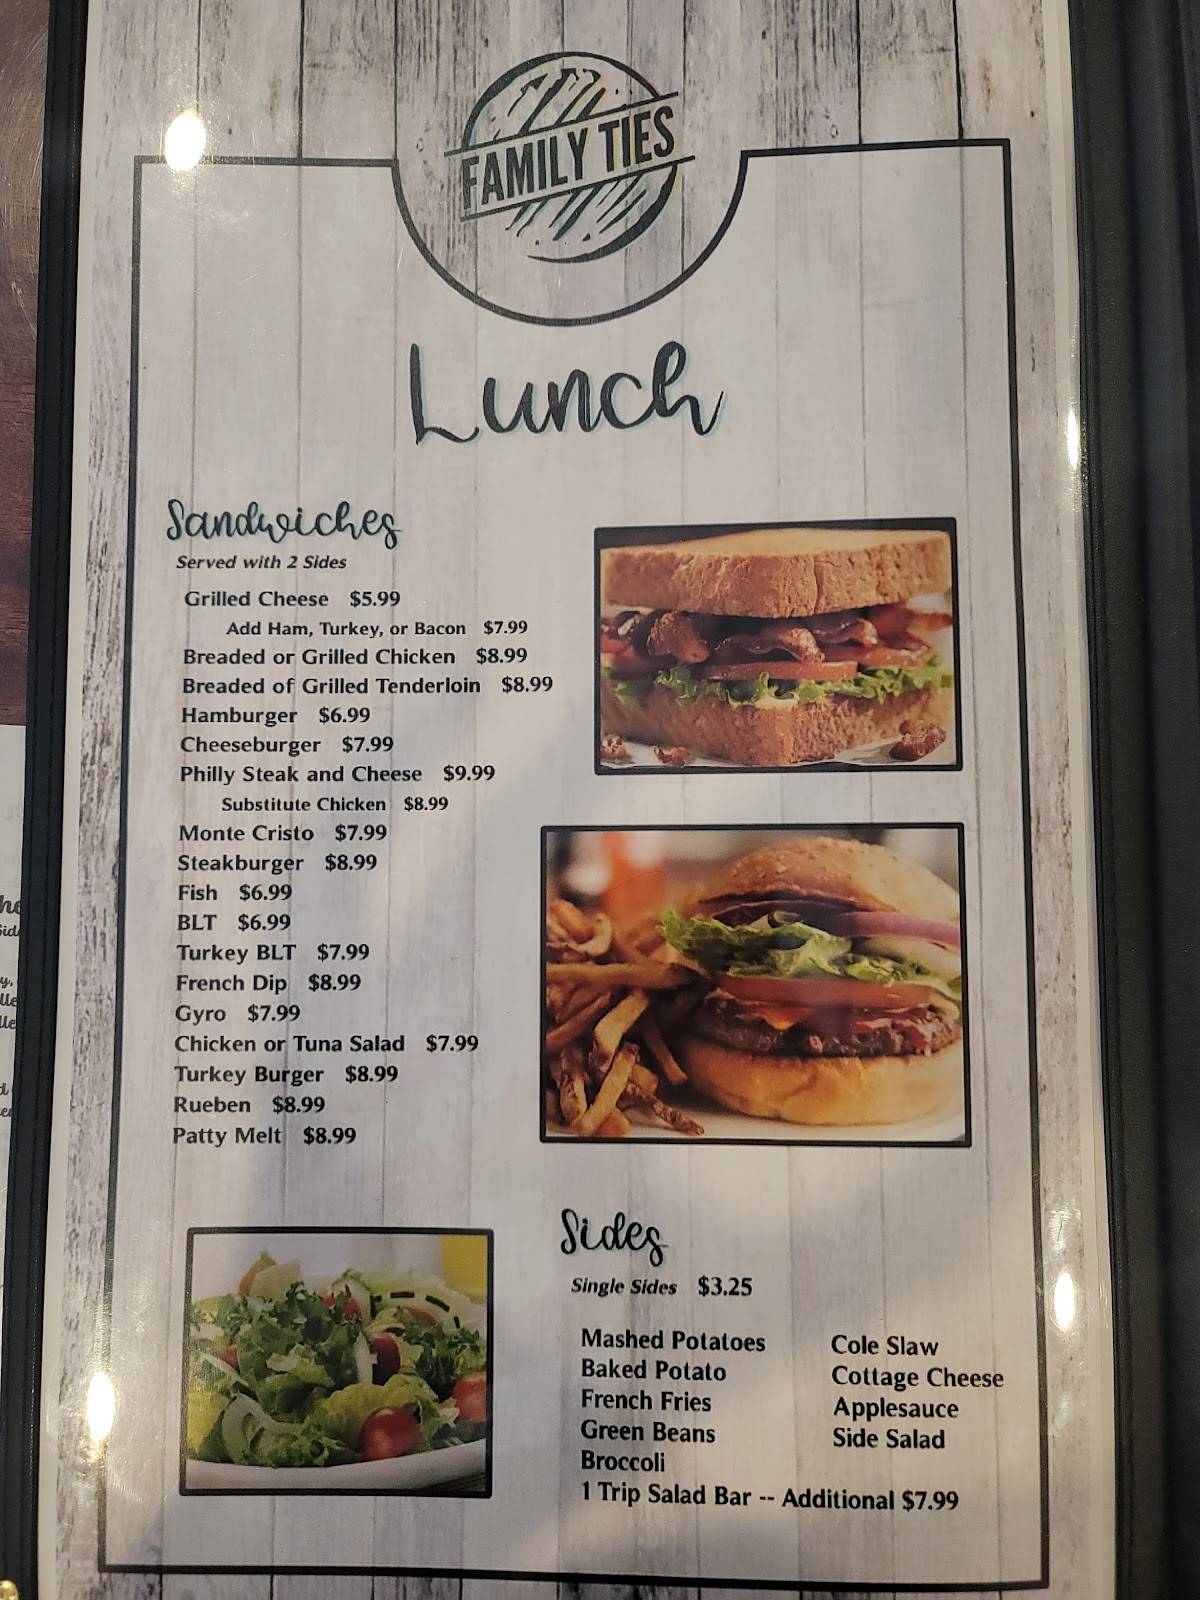 FAMILY TIES
Lunch
Sandwiches
Served with 2 Sides
Grilled Cheese $5.99
Add Ham, Turkey, or Bacon $7.99
Breaded or Grilled Chicken $8.99
Breaded of Grilled Tenderloin $8.99
Hamburger $6.99
Cheeseburger $7.99
Philly Steak and Cheese $9.99
Substitute Chicken $8.99
Monte Cristo $7.99
Steakburger $8.99
Fish $6.99
BLT $6.99
Turkey BLT $7.99
French Dip $8.99
Gyro $7.99
Chicken or Tuna Salad $7.99
Turkey Burger $8.99
Rueben $8.99
Patty Melt $8.99
Sides
Single Sides $3.25
Mashed Potatoes
Baked Potato
French Fries
Green Beans
Broccoli
Cole Slaw
Cottage Cheese
Applesauce
Side Salad
1 Trip Salad Bar -- Additional $7.99